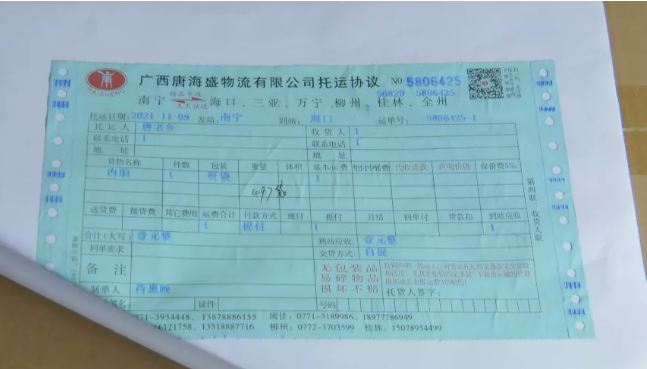 广西唐海盛物流有限公司托运协议 NO 5806425
精品专线
天天往返
50829 5806425
南宁 海口、三亚、万宁、柳州、桂林、全州
托运日期: 2021 11-09 发站: 南宁 到站: 海口 运单号: 5806425-1
托运人 唐老乡 收货人 1
联系电话 1 联系电话 1
地址 地址
货物名称 件数 包装 重量 体积 基本运费 代收货款 声明价值 保价费
内胆 1 1
送货费 接货费 其它费用 运费合计 付款方式 现付 提付 月结 回单付 货款扣 到站应收
1 提付 1 1
合计(大写) 壹元整 到站应收: 壹元整
回单要求 交货方式: 自提
备注
无包装品
易碎物品
损坏不赔
制单人 托货人签字:
证件 号码
第四联:收货人联
771-3934448、13878886155 0771-3189986、18977286949
13518887716 柳州: 0772-3703599 桂林: 15078954499